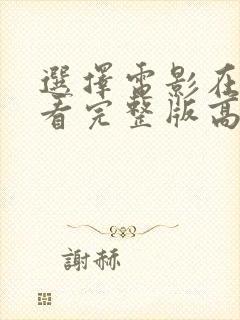 選擇電影在
看完整版高
謝赫